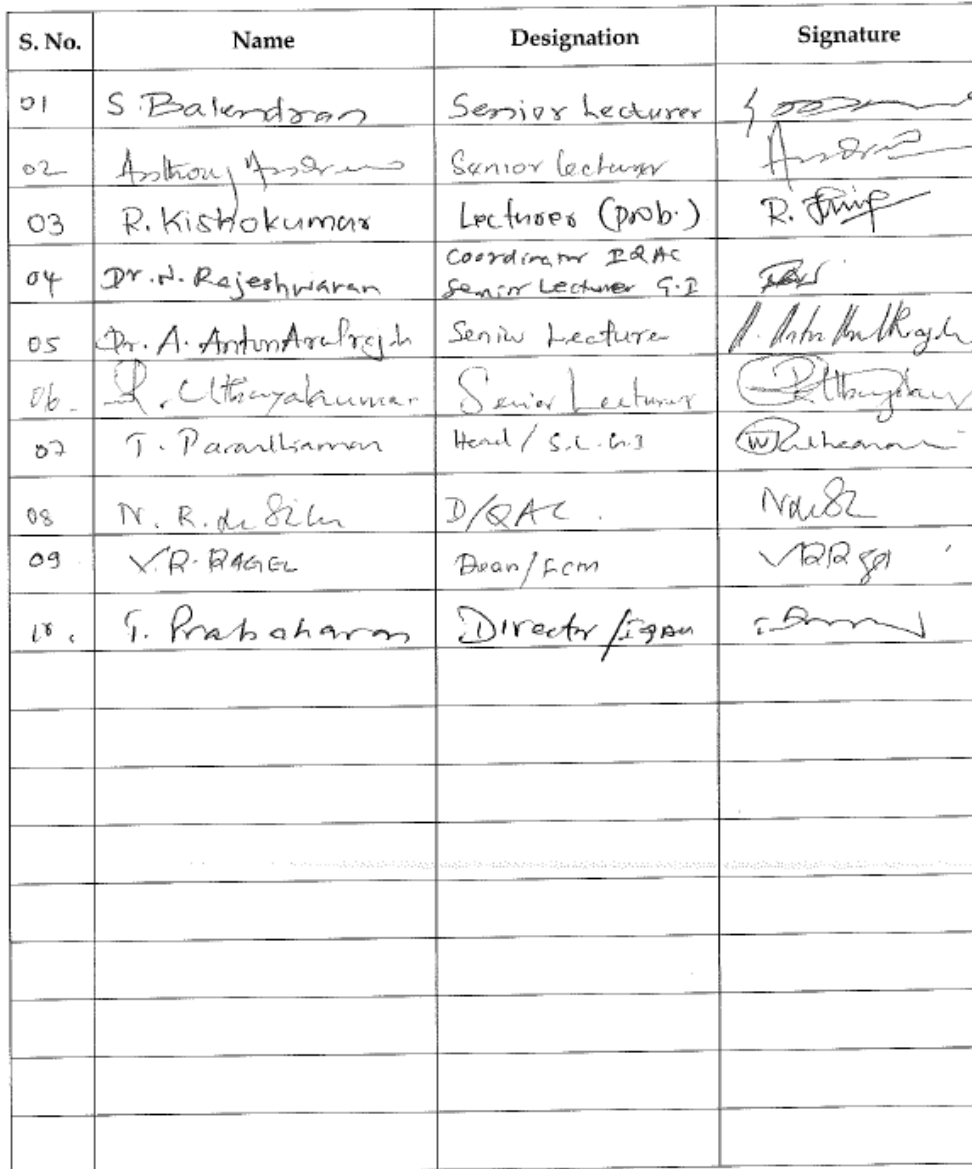 S. No. Name Designation Signature
01 S. Balendran Senior Lecturer
02 Anthony Andrew Senior lecturer
03 R. Kishokumar Lecturer (prob.) R.
04 Dr. N. Rajeshwaran Coordinator IQAC
Senior Lecturer G.I
05 Dr. A. Anton Arulrajah Senior Lecturer A. Anton Arulrajah
06. Uthayakumar Senior Lecturer
07 T. Paranthaman Head / S.L. G.I
08 N. R. de Silva D/QAC.
09 V.R. RAGEL Dean/FCM
10. T. Prabaharan Director/IQAU